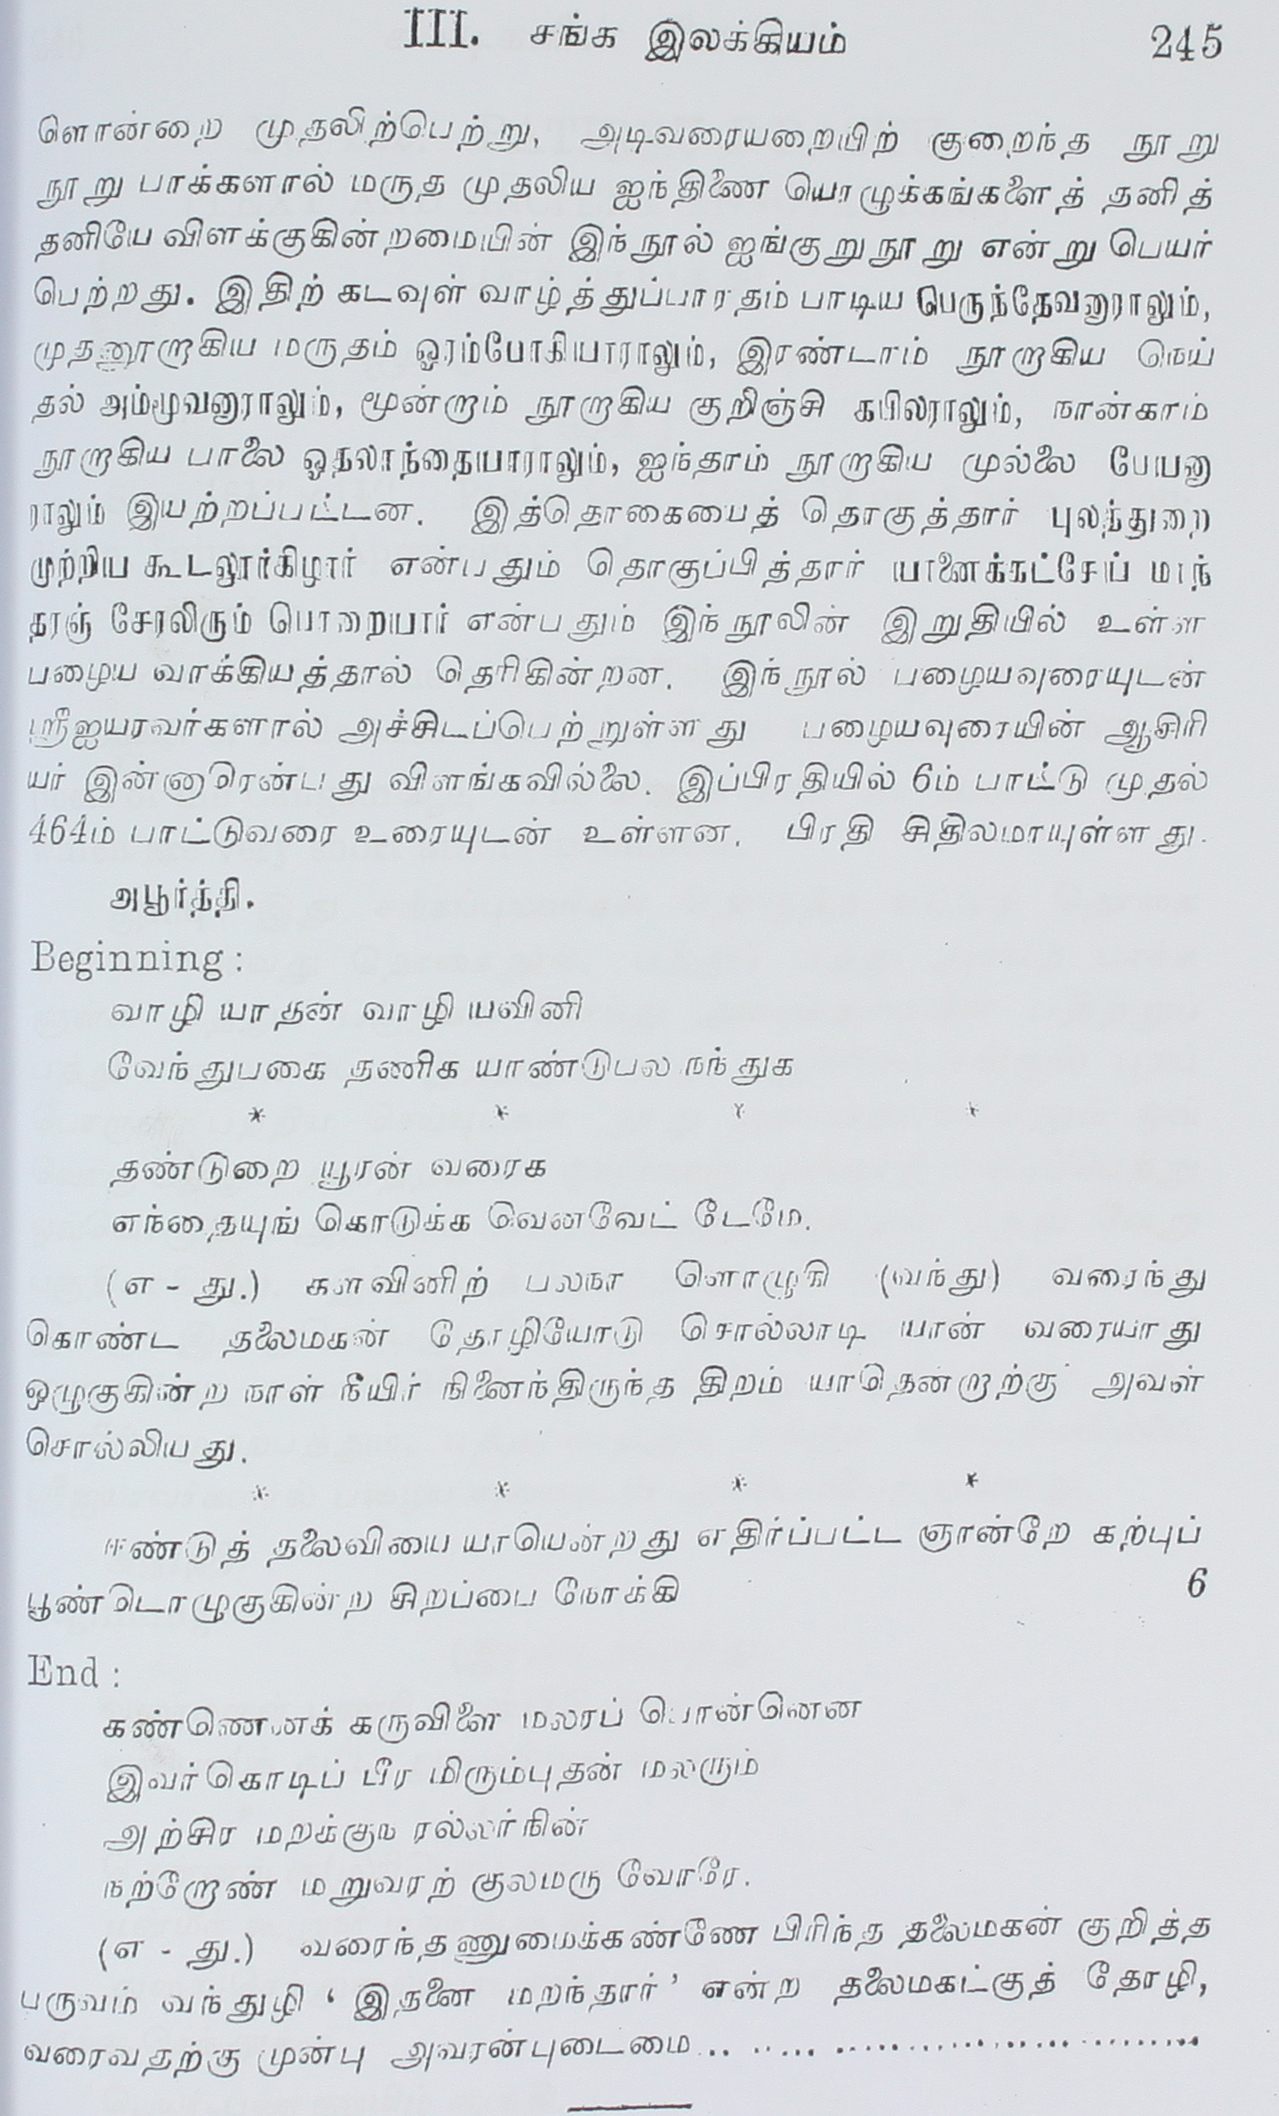 III. சங்க இலக்கியம் 245
ளொன்றை முதலிற்பெற்று, அடிவரையறையிற் குறைந்த நூறு
நூறு பாக்களால் மருத முதலிய ஐந்திணை யொழுக்கங்களைத் தனித்
தனியே விளக்குகின்றமையின் இந்நூல் ஐங்குறுநூறு என்று பெயர்
பெற்றது. இதிற் கடவுள் வாழ்த்துப்பாரதம் பாடிய பெருந்தேவனாராலும்,
முதனூறாகிய மருதம் ஓரம்போகியாராலும், இரண்டாம் நூறாகிய நெய்
தல் அம்மூவனாராலும், மூன்றாம் நூறாகிய குறிஞ்சி கபிலராலும், நான்காம்
நூறாகிய பாலை ஓதலாந்தையாராலும், ஐந்தாம் நூறாகிய முல்லை பேயனா
ராலும் இயற்றப்பட்டன. இத்தொகையைத் தொகுத்தார் புலத்துறை
முற்றிய கூடலூர்கிழார் என்பதும் தொகுப்பித்தார் யானைக்கட்சேய் மாந்
தரஞ் சேரலிரும் பொறையார் என்பதும் இந்நூலின் இறுதியில் உள்ள
பழைய வாக்கியத்தால் தெரிகின்றன. இந்நூல் பழையவுரையுடன்
ஸ்ரீஐயரவர்களால் அச்சிடப்பெற்றுள்ளது பழையவுரையின் ஆசிரி
யர் இன்னாரென்பது விளங்கவில்லை. இப்பிரதியில் 6ம் பாட்டு முதல்
464ம் பாட்டுவரை உரையுடன் உள்ளன. பிரதி சிதிலமாயுள்ளது.
அபூர்த்தி.
Beginning:
வாழி யாதன் வாழி யவினி
வேந்துபகை தணிக யாண்டுபல நந்துக
* * * *
தண்டுறை யூரன் வரைக
எந்தையுங் கொடுக்க வெனவேட் டேமே.
(எ - து.) களவினிற் பலநா ளொழுகி (வந்து) வரைந்து
கொண்ட தலைமகன் தோழியோடு சொல்லாடி யான் வரையாது
ஒழுகுகின்ற நாள் நீயிர் நினைந்திருந்த திறம் யாதென்றாற்கு அவள்
சொல்லியது.
* * * *
ஈண்டுத் தலைவியை யாயென்றது எதிர்ப்பட்ட ஞான்றே கற்புப்
பூண்டொழுகுகின்ற சிறப்பை நோக்கி 6
End:
கண்ணெனக் கருவிளை மலரப் பொன்னென
இவர்கொடிப் பீர மிரும்புதன் மலரும்
அற்சிர மறக்குந ரல்லர்நின்
நற்றோண் மறுவரற் குலமரு வோரே.
(எ - து.) வரைந்தணுமைக்கண்ணே பிரிந்த தலைமகன் குறித்த
பருவம் வந்துழி ' இதனை மறந்தார் ' என்ற தலைமகட்குத் தோழி,
வரைவதற்கு முன்பு அவரன்புடைமை..............................